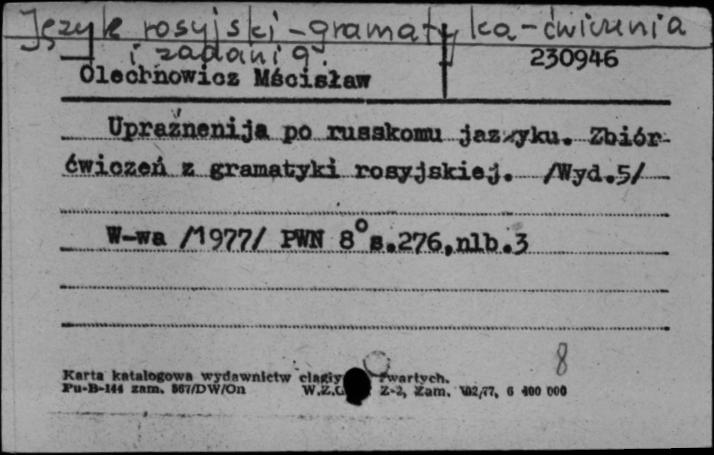 Język rosyjski - gramatyka - ćwiczenia
i zadania.
230946
Olechnowicz Mścisław
Upraźnenija po russkomu jazyku. Zbiór
ćwiczeń z gramatyki rosyjskiej. /Wyd.5/
W-wa /1977/ PWN 8° s.276,nlb.3
8
Karta katalogowa wydawnictw ciągłych zwartych.
Pu-B-144 zam. 567/DW/On W.Z.G. Z-2, Zam. 102/77, 6 400 000